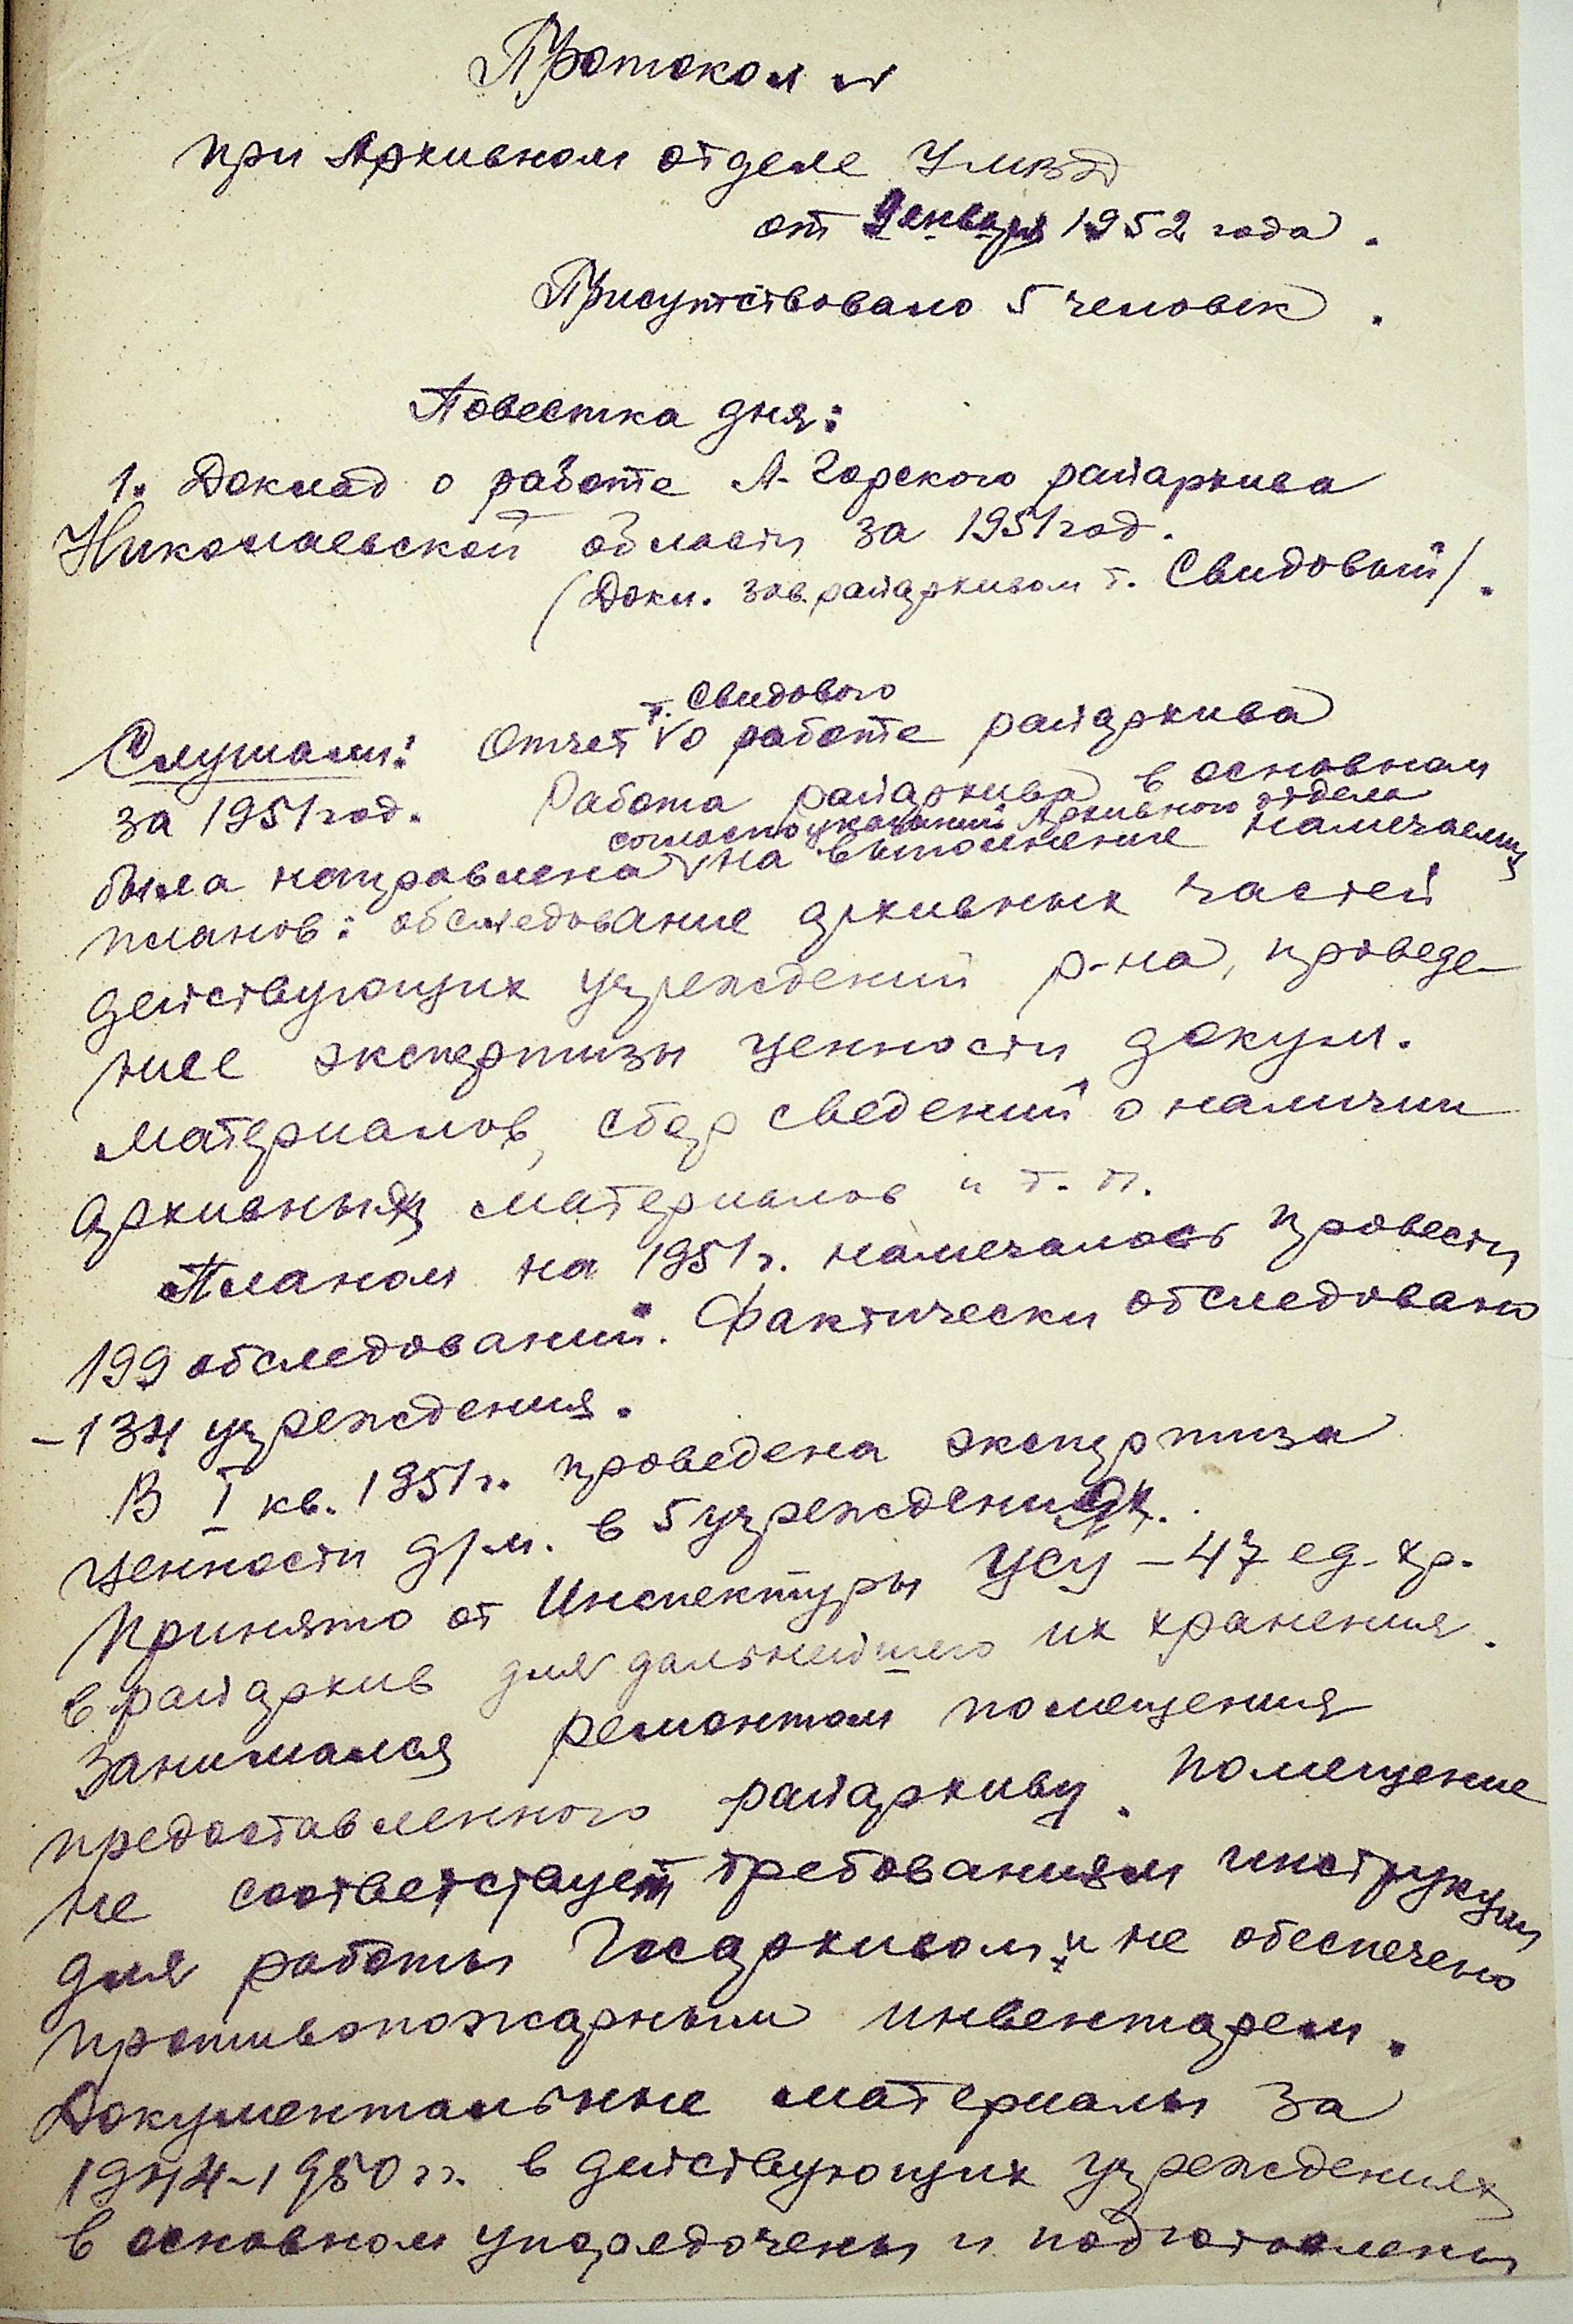 Протокол №
при Архивном отделе УМВД
от января 1952 года.
Присутствовало 5 человек.
Повестка дня:
1. Доклад о работе А-Горского райархива
Николаевской области за 1951 год.
(Докл. зав. райархивом т. Свидовый/.
т. Свидового
Слушали: Отчет V о работе райархива
за 1951 год. Работа райархива в основном
согласно указаний Архивного отдела
была направлена V на выполнение намечаемых
планов: обследование архивных частей
действующих учреждений р-на, проведе-
ние экспертизы ценности докум.
материалов, сбор сведений о наличии
архивных материалов и т. п.
Планом на 1951 г. намечалось провести
199 обследований. Фактически обследовано
- 134 учреждения.
В I кв. 1951 г. проведена экспертиза
ценности д/м. в 5 учреждениях.
Принято от Инспектуры ЦСУ - 47 ед. хр.
в райархив для дальнейшего их хранения.
Занимался ремонтом помещения
предоставленного райархиву. Помещение
не соответствует требованиям инструкции
для работы Госархивом и не обеспечено
противопожарным инвентарем.
Документальные материалы за
1944-1950 гг. в действующих учреждениях
в основном упорядочены и подготовлены